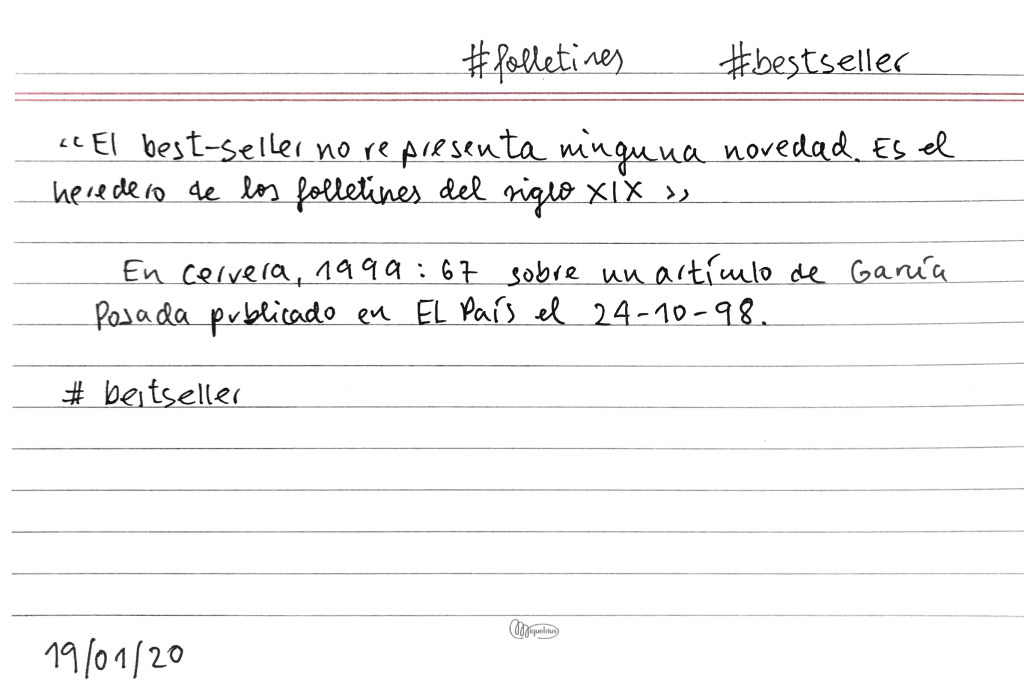 #folletines #bestseller
‹‹El best-seller no representa ninguna novedad. Es el
heredero de los folletines del siglo XIX ››
En Cervera, 1999: 67 sobre un artículo de García
Posada publicado en EL País el 24-10-98.
# bestseller
Miquelrius
19/01/20